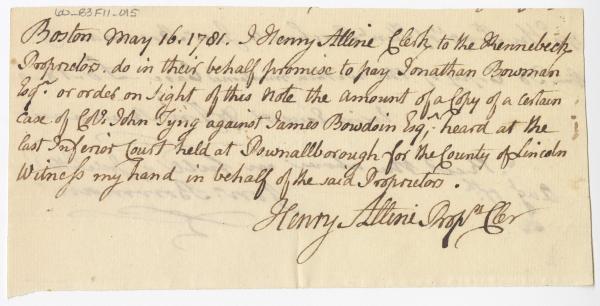 60-B3F11-015
Boston May 16. 1781. I Henry Alline Clerk to the Kennebeck
Proprietors do in their behalf promise to pay Jonathan Bowman
Esqr. or order on sight of this Note the amount of a Copy of a certain
case of Colo. John Tyng against James Bowdoin Esqr. heard at the
last Inferior Court held at Pownallborough for the County of Lincoln
Witness my hand in behalf of the said Proprietors.
Henry Alline Prop.rs Cler